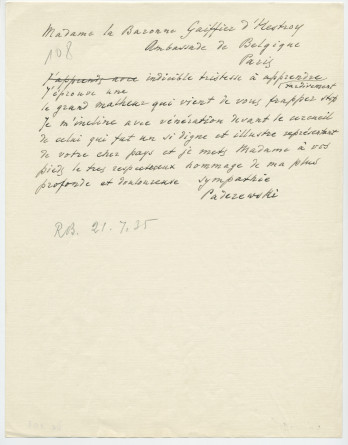 Madame la Baronne Gaiffier d'Hestroy
108
Ambassade de Belgique
Paris
J'apprends avec indicible tristesse à apprendre
J'éprouve une tardivement
le grand malheur qui vient de vous frapper stop
Je m'incline avec vénération devant le cercueil
de celui qui fut un si digne et illustre représentant
de votre cher pays et je mets Madame à vos
pieds le très respectueux hommage de ma plus
profonde et douloureuse sympathie
Paderewski
RB. 21.7.35